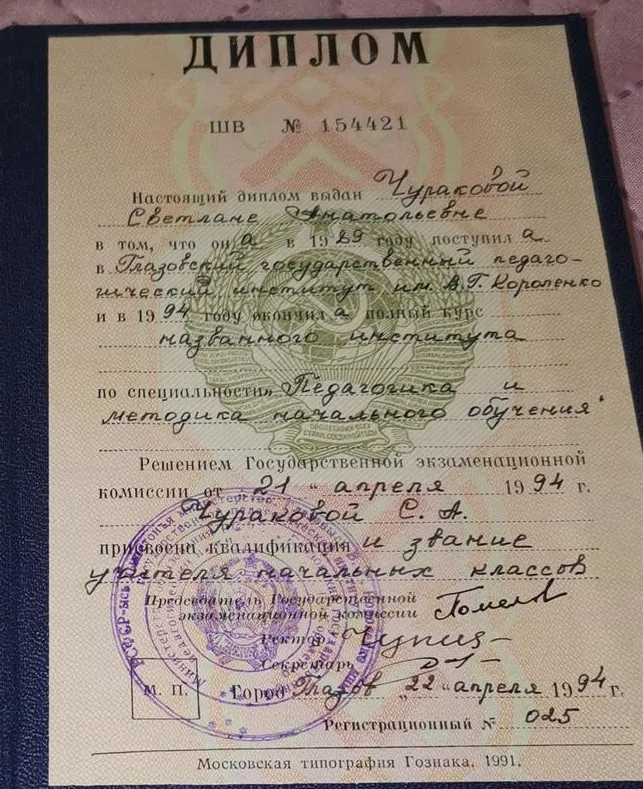 ДИПЛОМ
ШВ № 154421
Настоящий диплом выдан Чураковой
Светлане Анатольевне
в том, что он а в 1989 году поступил а
в Глазовский государственный педаго-
гический институт им. В.Г. Короленко
и в 1994 году окончил а полный курс
названного института
по специальности „Педагогика и
методика начального обучения"
Решением Государственной экзаменационной
комиссии от 21 " апреля 1994 г.
Чураковой С. А.
присвоена квалификация и звание
учителя начальных классов
Председатель Государственной
экзаменационной комиссии
Ректор
Секретарь
М. П. Город Глазов „22" апреля 1994 г.
Регистрационный № 025
Московская типография Гознака. 1991.